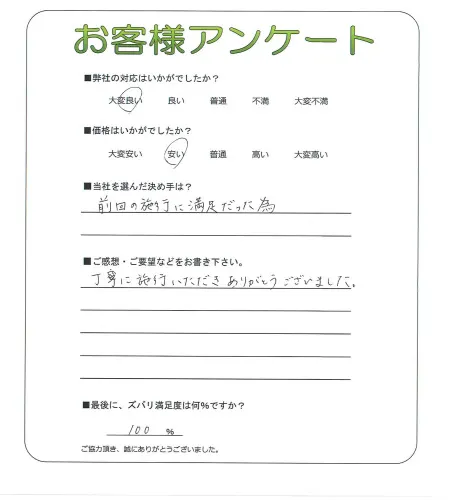 お客様アンケート
■弊社の対応はいかがでしたか？
大変良い 良い 普通 不満 大変不満
■価格はいかがでしたか？
大変安い 安い 普通 高い 大変高い
■当社を選んだ決め手は？
前回の施行に満足だった為
■ご感想・ご要望などをお書き下さい。
丁寧に施行いただきありがとうございました。
■最後に、ズバリ満足度は何％ですか？
100 ％
ご協力頂き、誠にありがとうございました。